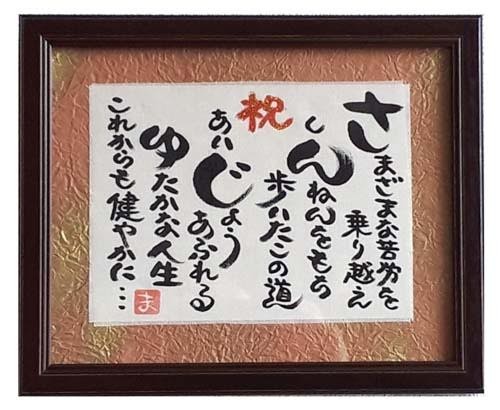 祝
さまざまな苦労を
乗り越え
しんねんをもち
歩いたこの道
あいじょう
あふれる
ゆたかな人生
これからも健やかに…
ま